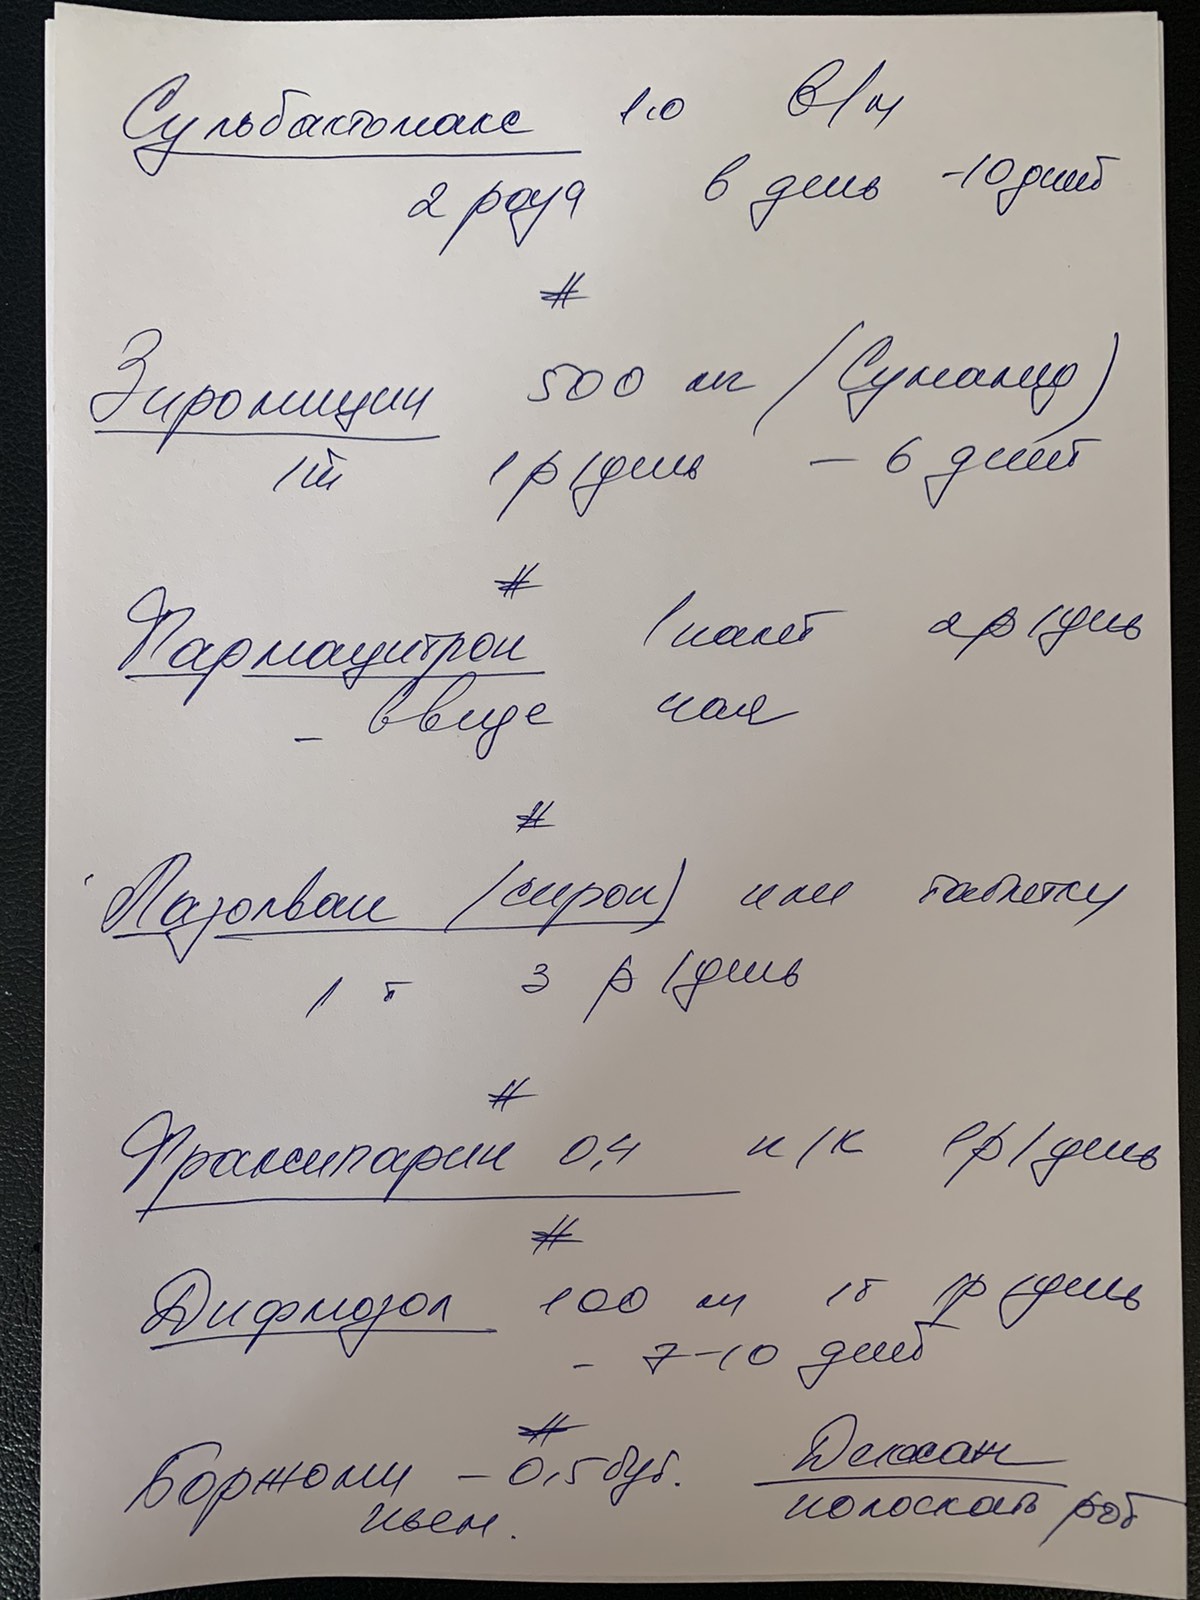 Сульбактомакс 1.0 в/м
2 раза в день -10 дней
#
Зиромицин 500 мг (Сумамед)
1т 1р/день – 6 дней
#
Фармацитрон 1 пакет 2р/день
– в виде чая
#
Лазолван (сироп) или таблетки
1 т 3 р/день
#
Фраксипарин 0,4 п/к 1р/день
#
Дифлюзол 100 м 1т 1р/день
– 7-10 дней
#
Боржоми – 0,5 бут. Декасан
пьем. полоскать рот